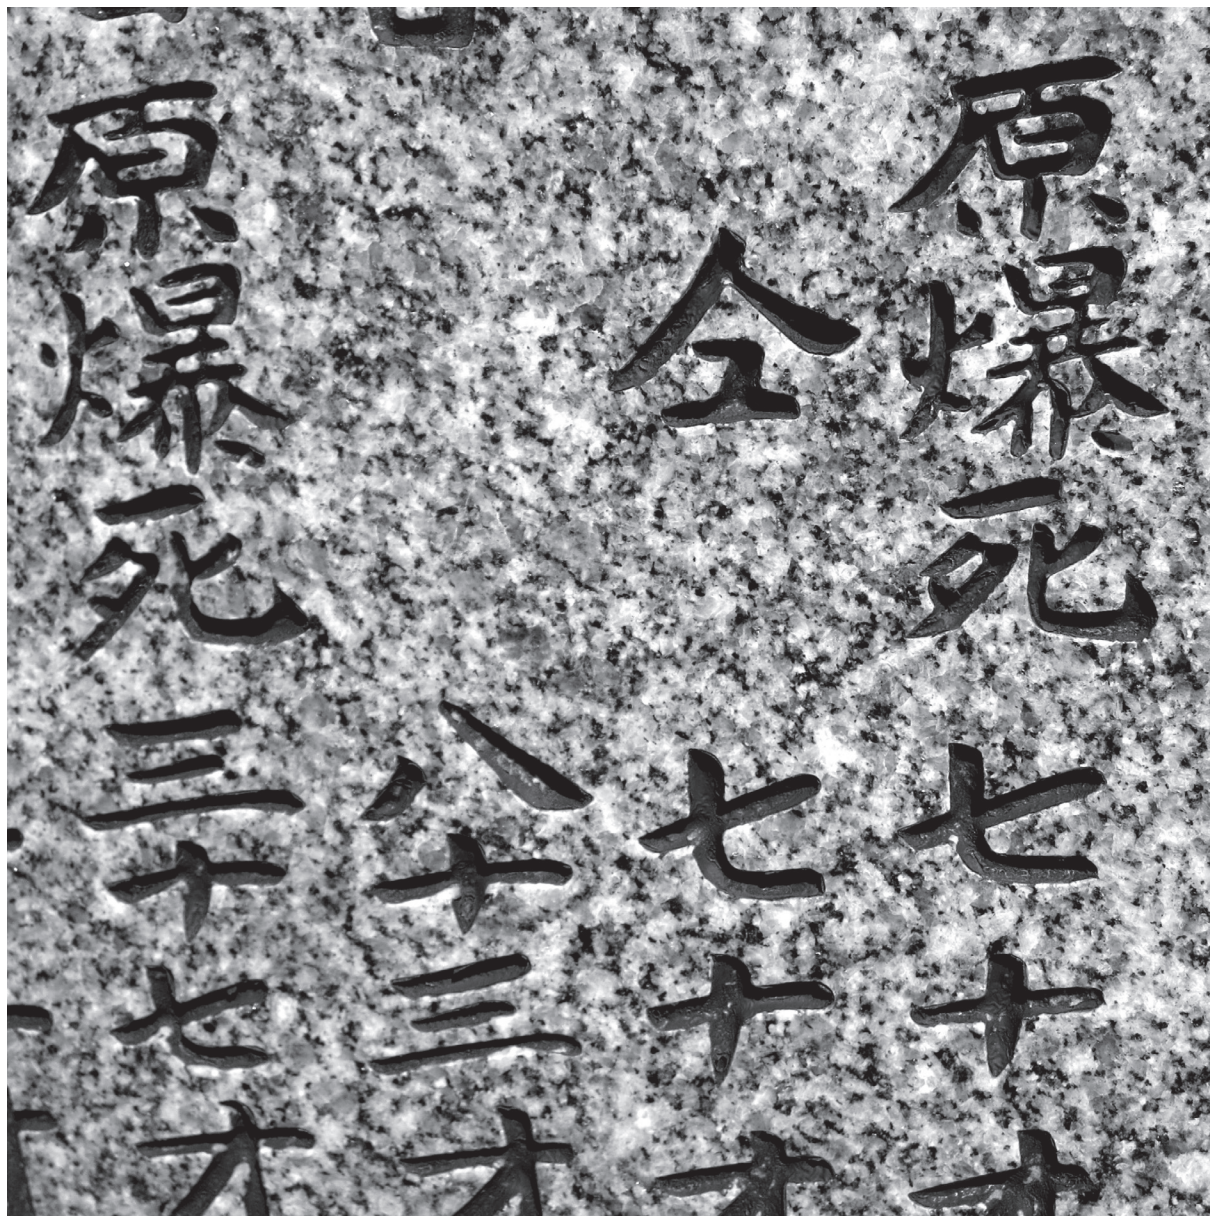 原爆死 七十才
仝 七十才
八十三才
原爆死 三十七才